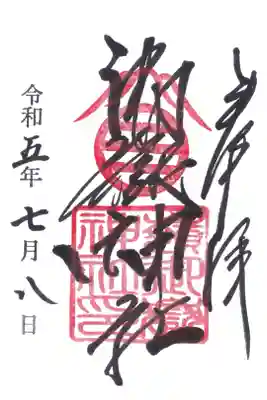 奉拝
御嶽神社
令和五年七月八日